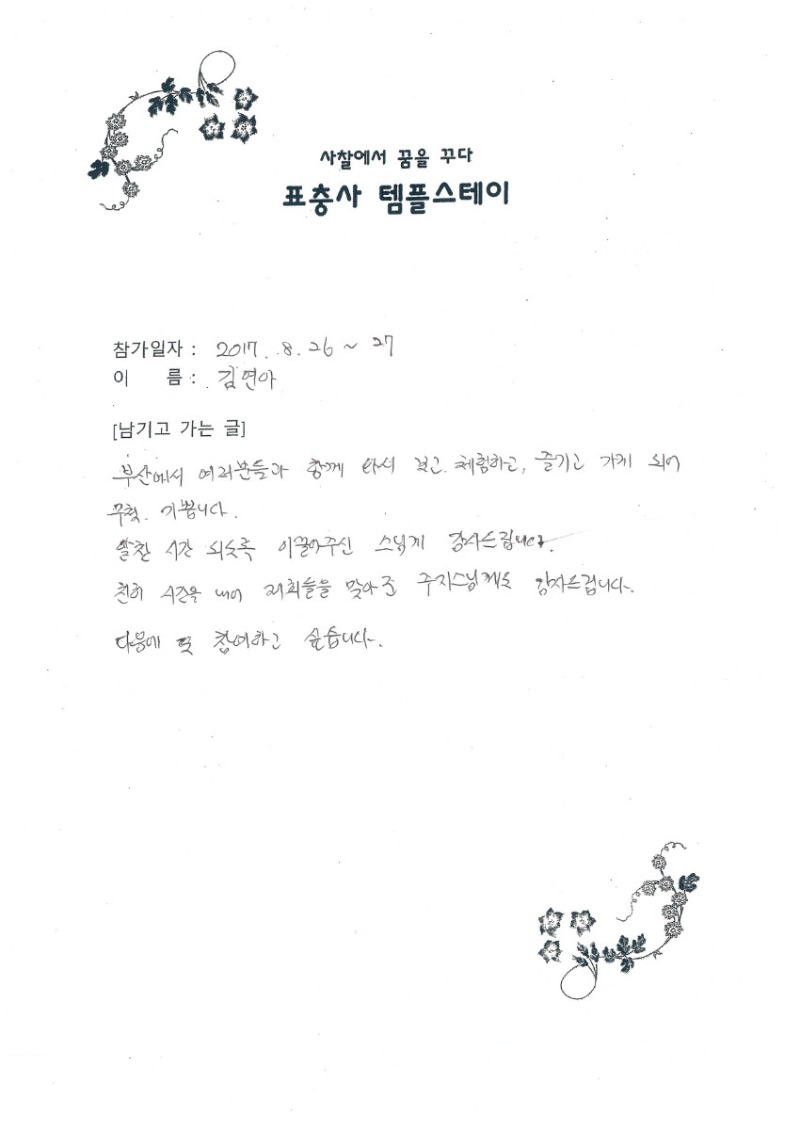 사찰에서 꿈을 꾸다
표충사 템플스테이
참가일자 : 2017. 8. 26 ~ 27
이 름 : 김연아
[남기고 가는 글]
부산에서 여러분들과 함께 와서 걷고. 체험하고, 즐기고 가게 되어
무척. 기쁩니다.
알찬 시간 되도록 이끌어주신 스님께 감사드립니다.
친히 시간을 내어 저희들을 맞아준 주지스님께도 감사드립니다.
다음에 또 참여하고 싶습니다.